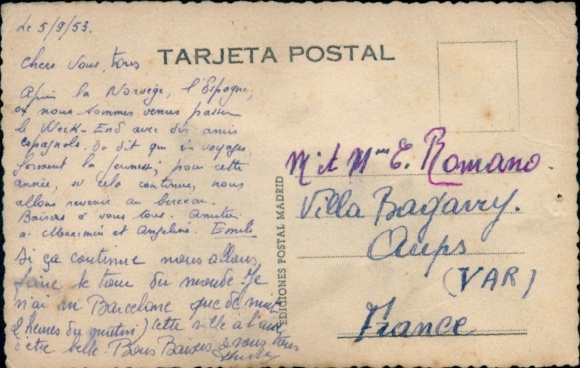 Le 5/9/53.
TARJETA POSTAL
Chers Vous, tous
Après la Norvège, l'Espagne,
où nous sommes venus passer
le Week-End avec des amis
espagnols. On dit que les voyages
forment la jeunesse; pour cette
année, si cela continue, nous
allons revenir au berceau.
Baisers à vous tous. Amitiés
à Maximin et Angeline. Emile
Si ça continue nous allons
faire le tour du monde. Je
n'ai vu Barcelone que de nuit
2 heures du matin) cette ville à l'air
d'être belle. Bons Baisers à vous tous
EDICIONES POSTAL MADRID
Mr et Mme E. Romano.
Villa Bagarry.
Aups
(VAR)
France